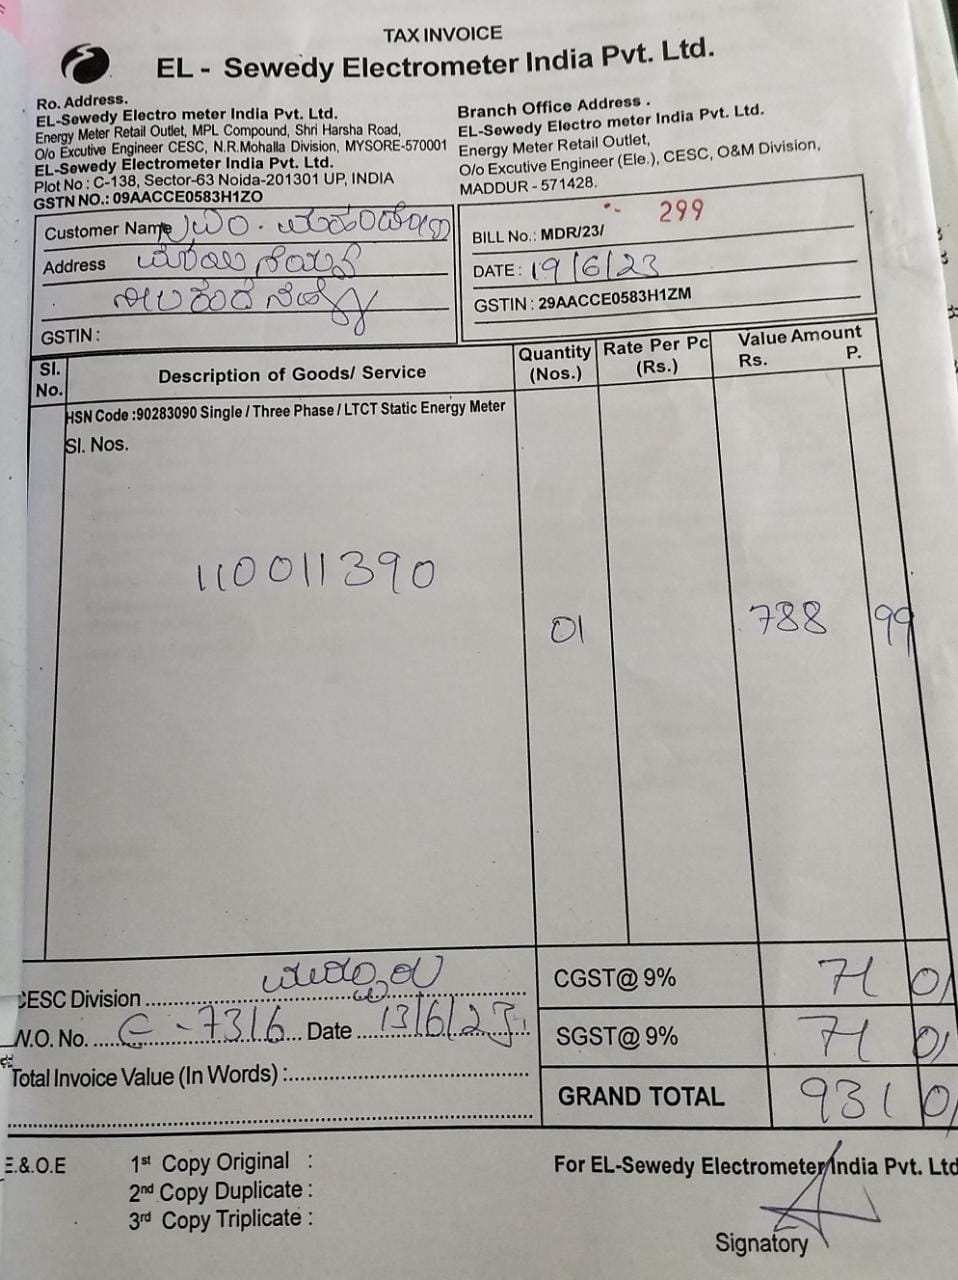 TAX INVOICE
EL - Sewedy Electrometer India Pvt. Ltd.
Ro. Address.
EL-Sewedy Electro meter India Pvt. Ltd.
Energy Meter Retail Outlet, MPL Compound, Shri Harsha Road,
O/o Excutive Engineer CESC, N.R.Mohalla Division, MYSORE-570001
EL-Sewedy Electrometer India Pvt. Ltd.
Plot No : C-138, Sector-63 Noida-201301 UP, INDIA
GSTN NO.: 09AACCE0583H1ZO
Branch Office Address .
EL-Sewedy Electro meter India Pvt. Ltd.
Energy Meter Retail Outlet,
O/o Excutive Engineer (Ele.), CESC, O&M Division,
MADDUR - 571428.
Customer Name
Address
GSTIN :
BILL No.: MDR/23/ 299
DATE : 19/6/23
GSTIN : 29AACCE0583H1ZM
Sl. No. Description of Goods/ Service Quantity (Nos.) Rate Per Pc (Rs.) Value Amount Rs. P.
HSN Code :90283090 Single / Three Phase / LTCT Static Energy Meter
Sl. Nos.
110011390
01 788 99
CESC Division
W.O. No. C-7316 Date 13/6/23
Total Invoice Value (In Words) :
CGST@ 9% 71 01
SGST@ 9% 71 01
GRAND TOTAL 931 01
E.&.O.E
1st Copy Original :
2nd Copy Duplicate :
3rd Copy Triplicate :
For EL-Sewedy Electrometer India Pvt. Ltd
Signatory